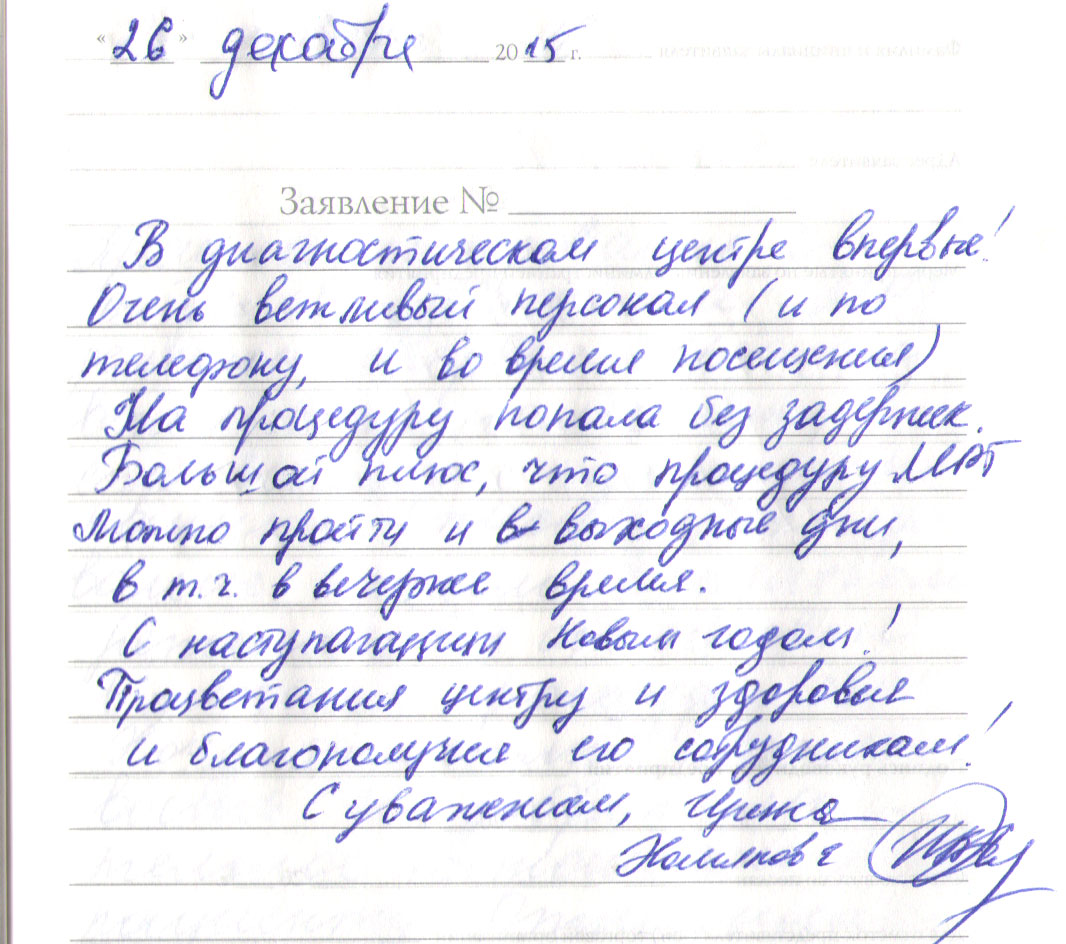 "26" декабря 2015 г.
Заявление №
В диагностическом центре впервые!
Очень вежливый персонал (и по
телефону, и во время посещения)
На процедуру попала без задержек.
Большой плюс, что процедуру МРТ
можно пройти и в выходные дни,
в т.ч. в вечернее время.
С наступающим Новым годом!
Процветания центру и здоровья
и благополучия его сотрудникам!
С уважением, Ирина